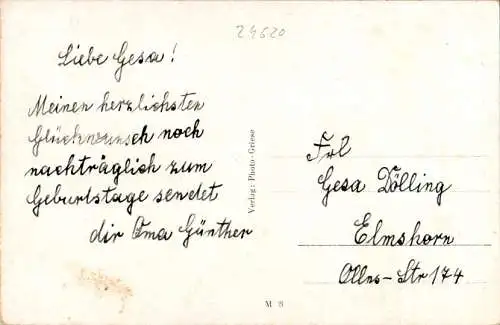 24620
Liebe Gesa!
Meinen herzlichsten
Glückwunsch noch
nachträglich zum
Geburtstage sendet
dir Oma Günther
Verlag: Photo-Griese
Frl
Gesa Dölling
Elmshorn
Str 174
M 8